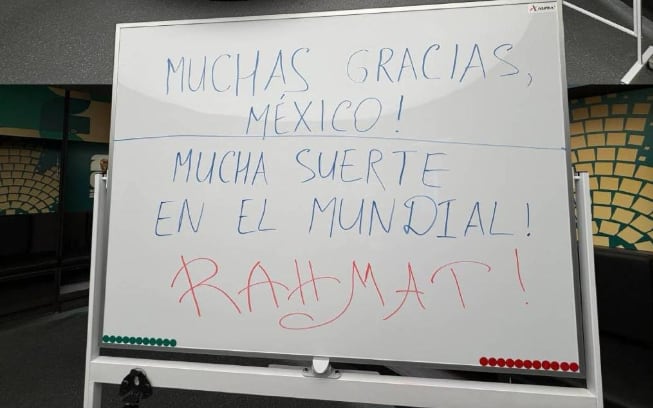 MUCHAS GRACIAS,
MÉXICO!
MUCHA SUERTE
EN EL MUNDIAL!
RAHMAT!